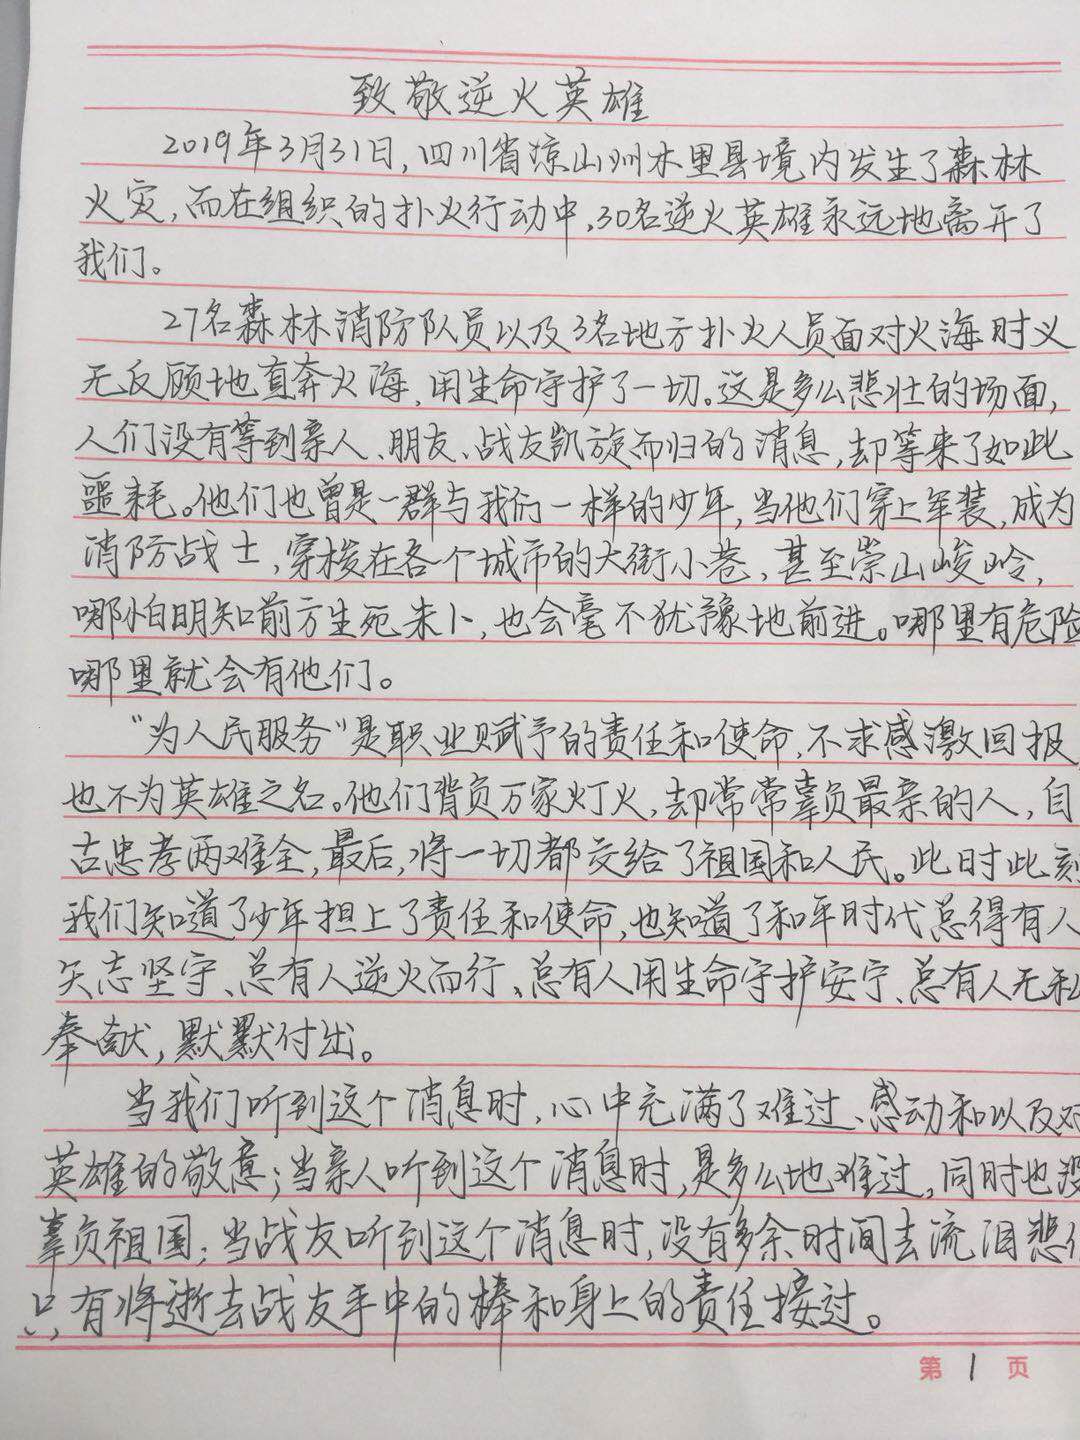 致敬逆火英雄
2019年3月31日,四川省凉山州木里县境内发生了森林
火灾,而在组织的扑火行动中,30名逆火英雄永远地离开了
我们。
27名森林消防队员以及3名地方扑火人员面对火海时义
无反顾地直奔火海,用生命守护了一切。这是多么悲壮的场面,
人们没有等到亲人、朋友、战友凯旋而归的消息,却等来了如此
噩耗。他们也曾是一群与我们一样的少年,当他们穿上军装,成为
消防战士,穿梭在各个城市的大街小巷,甚至崇山峻岭,
哪怕明知前方生死未卜,也会毫不犹豫地前进。哪里有危险
哪里就会有他们。
“为人民服务”是职业赋予的责任和使命,不求感激回报
也不为英雄之名。他们背负万家灯火,却常常辜负最亲的人,自
古忠孝两难全,最后,将一切都交给了祖国和人民。此时此刻
我们知道了少年担上了责任和使命,也知道了和平时代总得有人
矢志坚守、总有人逆火而行、总有人用生命守护安宁、总有人无私
奉献,默默付出。
当我们听到这个消息时,心中充满了难过、感动和以及对
英雄的敬意;当亲人听到这个消息时,是多么地难过,同时也没
辜负祖国;当战友听到这个消息时,没有多余时间去流泪悲伤
只有将逝去战友手中的棒和身上的责任接过。
第1页